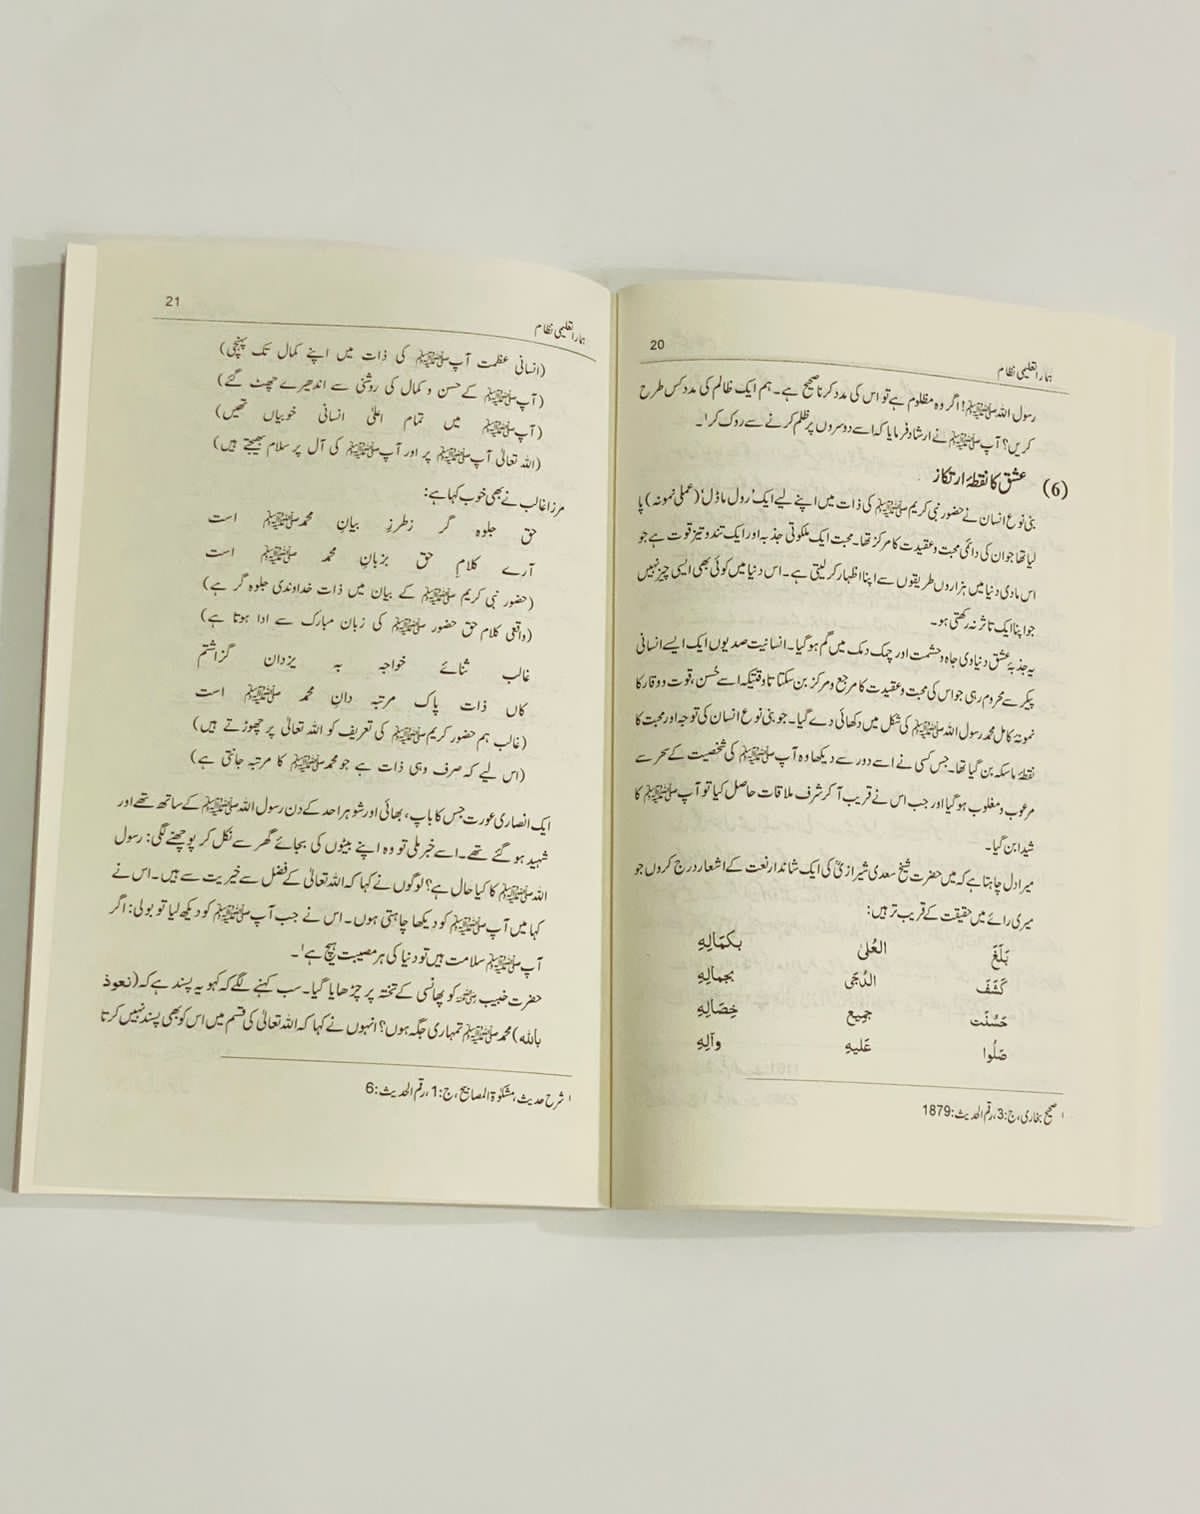 20
ہمارا تعلیمی نظام
رسول اللہ ﷺ! اگر وہ مظلوم ہے تو اس کی مدد کرنا صحیح ہے۔ ہم ایک ظالم کی مدد کس طرح
کریں؟ آپ ﷺ نے ارشاد فرمایا کہ اسے دوسروں پر ظلم کرنے سے روک کر۱۔
(6) عشق کا نقطۂ ارتکاز
بنی نوع انسان نے حضور نبی کریم ﷺ کی ذات میں اپنے لیے ایک 'رول ماڈل' (عملی نمونہ) پا
لیا تھا جو ان کی دائمی محبت و عقیدت کا مرکز تھا۔ محبت ایک ملکوتی جذبہ اور ایک تند و تیز قوت ہے جو
اس مادی دنیا میں ہزاروں طریقوں سے اپنا اظہار کر لیتی ہے۔ اس دنیا میں کوئی بھی ایسی چیز نہیں
جو اپنا ایک تاثر نہ رکھتی ہو۔
یہ جذبۂ عشق دنیاوی جاہ و حشمت اور چمک دمک میں گم ہو گیا۔ انسانیت صدیوں ایک ایسے انسانی
پیکر سے محروم رہی جو اس کی محبت و عقیدت کا مرجع و مرکز بن سکتا تاوقتیکہ اسے حُسن، قوت و وقار کا
نمونۂ کامل محمد رسول اللہ ﷺ کی شکل میں دکھائی دے گیا۔ جو بنی نوع انسان کی توجہ اور محبت کا
نقطۂ ماسکہ بن گیا تھا۔ جس کسی نے اسے دور سے دیکھا وہ آپ ﷺ کی شخصیت کے سحر سے
مرعوب و مغلوب ہو گیا اور جب اس نے قریب آ کر شرف ملاقات حاصل کیا تو آپ ﷺ کا
شیدا بن گیا۔
میرا دل چاہتا ہے کہ میں حضرت شیخ سعدی شیرازیؒ کی ایک شاندار نعت کے اشعار درج کروں جو
میری رائے میں حقیقت کے قریب تر ہیں:
بَلَغَ العُلیٰ بکمَالِهِ
کَشَفَ الدُجیٰ بجمالِهِ
حَسُنَت جمِیع خِصَالِهِ
صَلُوا عَلَیهِ وآلِهِ
۱ صحیح بخاری، ج:3، رقم الحدیث:1879
21
ہمارا تعلیمی نظام
(انسانی عظمت آپ ﷺ کی ذات میں اپنے کمال تک پہنچی)
(آپ ﷺ کے حسن و کمال کی روشنی سے اندھیرے چھٹ گئے)
(آپ ﷺ میں تمام اعلیٰ انسانی خوبیاں تھیں)
(اللہ تعالیٰ آپ ﷺ پر اور آپ ﷺ کی آل پر سلام بھیجتے ہیں)
مرزا غالب نے بھی خوب کہا ہے:
حق جلوہ گر زطرزِ بیانِ محمد ﷺ است
آرے کلامِ حق بزبانِ محمد ﷺ است
(حضور نبی کریم ﷺ کے بیان میں ذات خداوندی جلوہ گر ہے)
(واقعی کلام حق حضور ﷺ کی زبان مبارک سے ادا ہوتا ہے)
غالب ثنائے خواجہ بہ یزدان گزاشتم
کاں ذات پاک مرتبہ دانِ محمد ﷺ است
(غالب ہم حضور کریم ﷺ کی تعریف کو اللہ تعالیٰ پر چھوڑتے ہیں)
(اس لیے کہ صرف وہی ذات ہے جو محمد ﷺ کا مرتبہ جانتی ہے)
ایک انصاری عورت جس کا باپ، بھائی اور شوہر احد کے دن رسول اللہ ﷺ کے ساتھ تھے اور
شہید ہو گئے تھے۔ اسے خبر ملی تو وہ اپنے بیٹوں کی بجائے گھر سے نکل کر پوچھنے لگی: رسول
اللہ ﷺ کا کیا حال ہے؟ لوگوں نے کہا کہ اللہ تعالیٰ کے فضل سے خیریت سے ہیں۔ اس نے
کہا میں آپ ﷺ کو دیکھا چاہتی ہوں۔ اس نے جب آپ ﷺ کو دیکھ لیا تو بولی: اگر
آپ ﷺ سلامت ہیں تو دنیا کی ہر مصیبت ہیچ ہے۱۔
حضرت خبیب ؓ کو پھانسی کے تختہ پر چڑھایا گیا۔ سب کہنے لگے کہ کہو یہ پسند ہے کہ (نعوذ
باللہ) محمد ﷺ تمہاری جگہ ہوں؟ انہوں نے کہا کہ اللہ تعالیٰ کی قسم میں اس کو بھی پسند نہیں کرتا
۱ شرح حدیث، مشکوٰۃ المصابیح، ج:1، رقم الحدیث:6